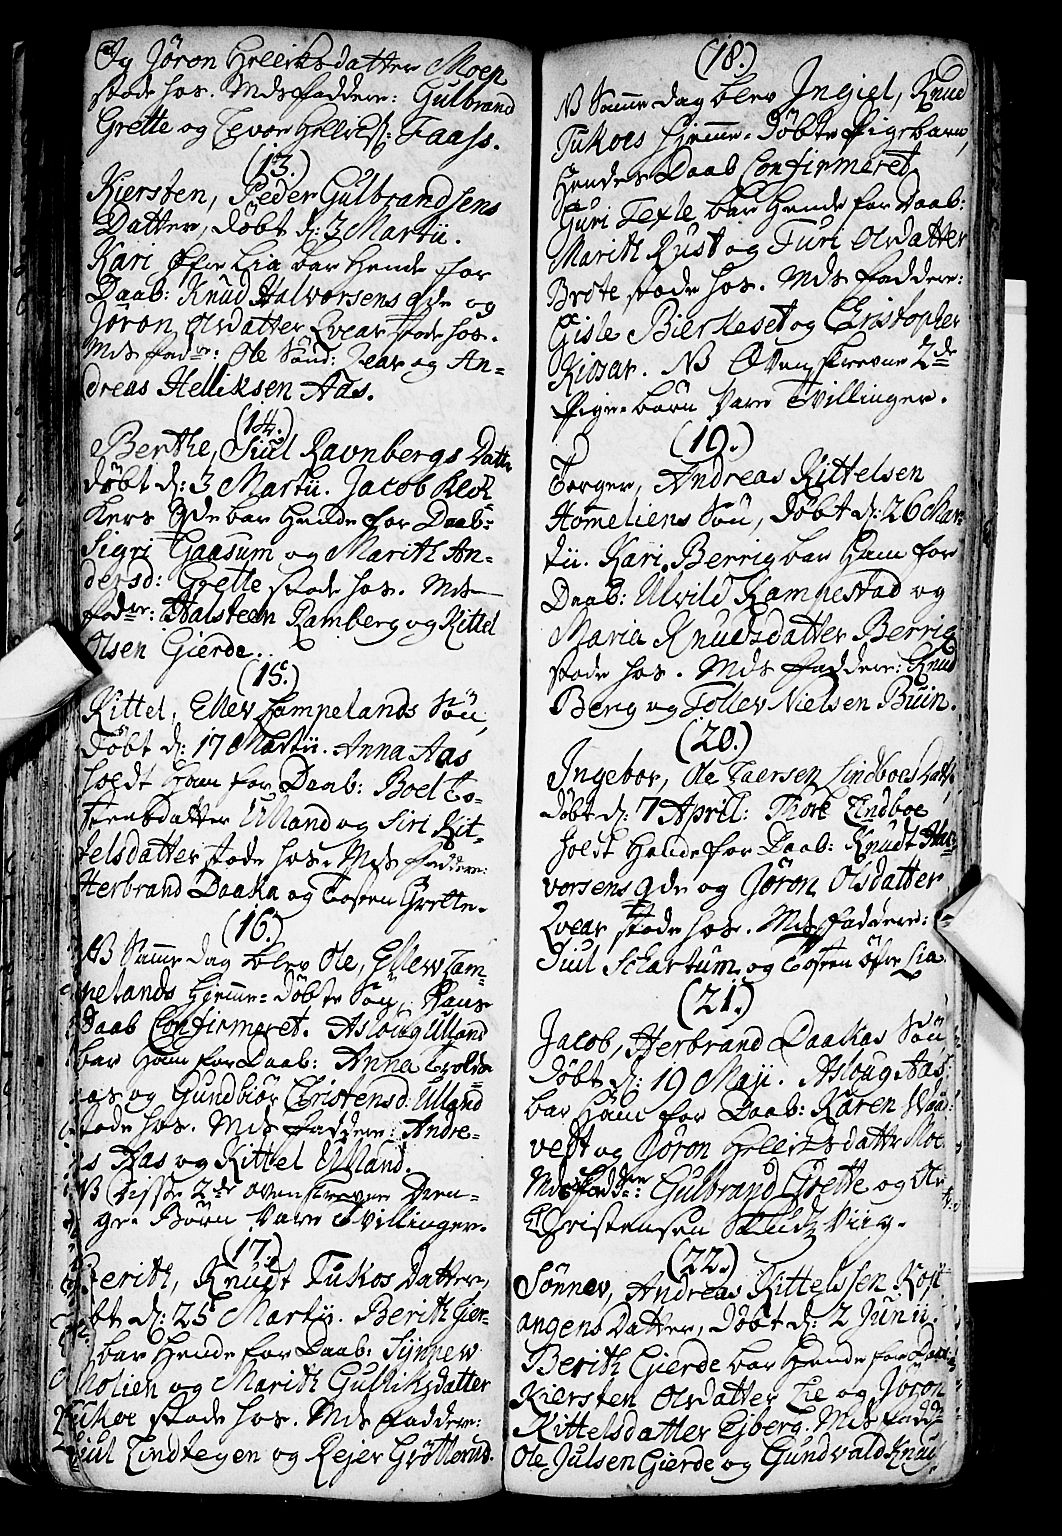 Og Jøron Helliksdatter Moen
stode hos. Mds faddere: Gulbrand
Grette og Tevor Hellichs: Faass.
(13.)
Kiersten, Peder Gulbrandsens
Datter, døbt d: 3 Martii.
Kari Øfre Lia bar hende for
Daab: Knud Halvorsens qde og
Jøron Olsdatter Qvear stode hos.
Mds fadre: Ole Sønd: Qvear og An=
dreas Helliksen Aas.
(14.)
Berthe, Siul Ravnbergs Datter
døbt d: 3 Martii. Jacob Klok
kers Qde bar hende for Daab:
Sigri Gaasum og Marith An=
dersd: Grette stode hos. Mds
fadre: Halsteen Ramberg og Kittel
Olsen Gierde.
(15.)
Kittel, Ellev Lampelands Søn,
døbt d: 17 Martii. Anna Aas
holdt ham for Daab: Boel To=
steensdatter Ulland og Siri Kit=
telsdatter stode hos. Mds faddere:
Herbrand Daaka og Tosten Grette.
(16.)
NB Samme dag blev Ole, Ellev Lam=
pelands hjemme=døbte Søn, hans
Daab Confirmeret. Aslaug Ulland
bar ham for Daab: Anna
aas og Gundbiør Christensd: Ulland
stode hos. Mds faddere: Andre=
as Aas og Kittel Ulland.
NB Disse 2de ovenskrevne Dren=
ge=Børn vare Tvillinger.
(17.)
Berith, Knudt Tukos datter,
døbt d: 25 Martii. Berith Gier=
bar hende for Daab: Synnev
Molien og Marith Gulliksdatter
Tukoe stode hos. Mds faddere:
Siul Lindtegen og Rejer Grøtterud.
(18.)
NB Samme dag blev Ingiel, Knud
Tukoes hjemme=døbte Pigebarn,
hendes Daab Confirmeret.
Guri Texle bar hende for Daab:
Marith Rust og Turi Olsdatter
Brøte stode hos. Mds faddere:
Gisle Bierkeset og Christopher
Kissar. NB Ovenskrevne 2de
Pige=børn vare Tvillinger.
(19.)
Torger, Andreas Kittelsen
Homeliens Søn, døbt d: 26 Mar=
tii. Kari Berrig bar ham for
Daab: Ulvild Kampestad og
Maria Knudsdatter Berrig
stode hos. Mds faddere: Knud
Berg og Tollev Nielsen Buin.
(20.)
Ingebor, Ole Larsen Lindboes datter,
døbt d: 7 April: Thore Lindboe
holdt hende for Daab: Knudt Hal=
vorsens qde og Jøron Olsdatter
Qvear stode hos. Mds faddere:
Siul Schartum og Tosten øfre Lia
(21.)
Jacob, Herbrand Daakas Søn
døbt d: 19 Maji. Aslaug Aas
bar ham for Daab: Karen Waad=
vest og Jøron Helliksdatter Moe
Mds faddre: Gulbrand Grette og Ole
Christensen
(22.)
Sønnev, Andreas Kittelssen Kost
angens Datter, døbt d: 2 Junii.
Berith Gierde bar hende for Daab
Kiersten Olsdatter Lie og Jøron
Kittelsdatter Ejberg. Mds fadd=
Ole Julsen Gierde og Gundvald Knud